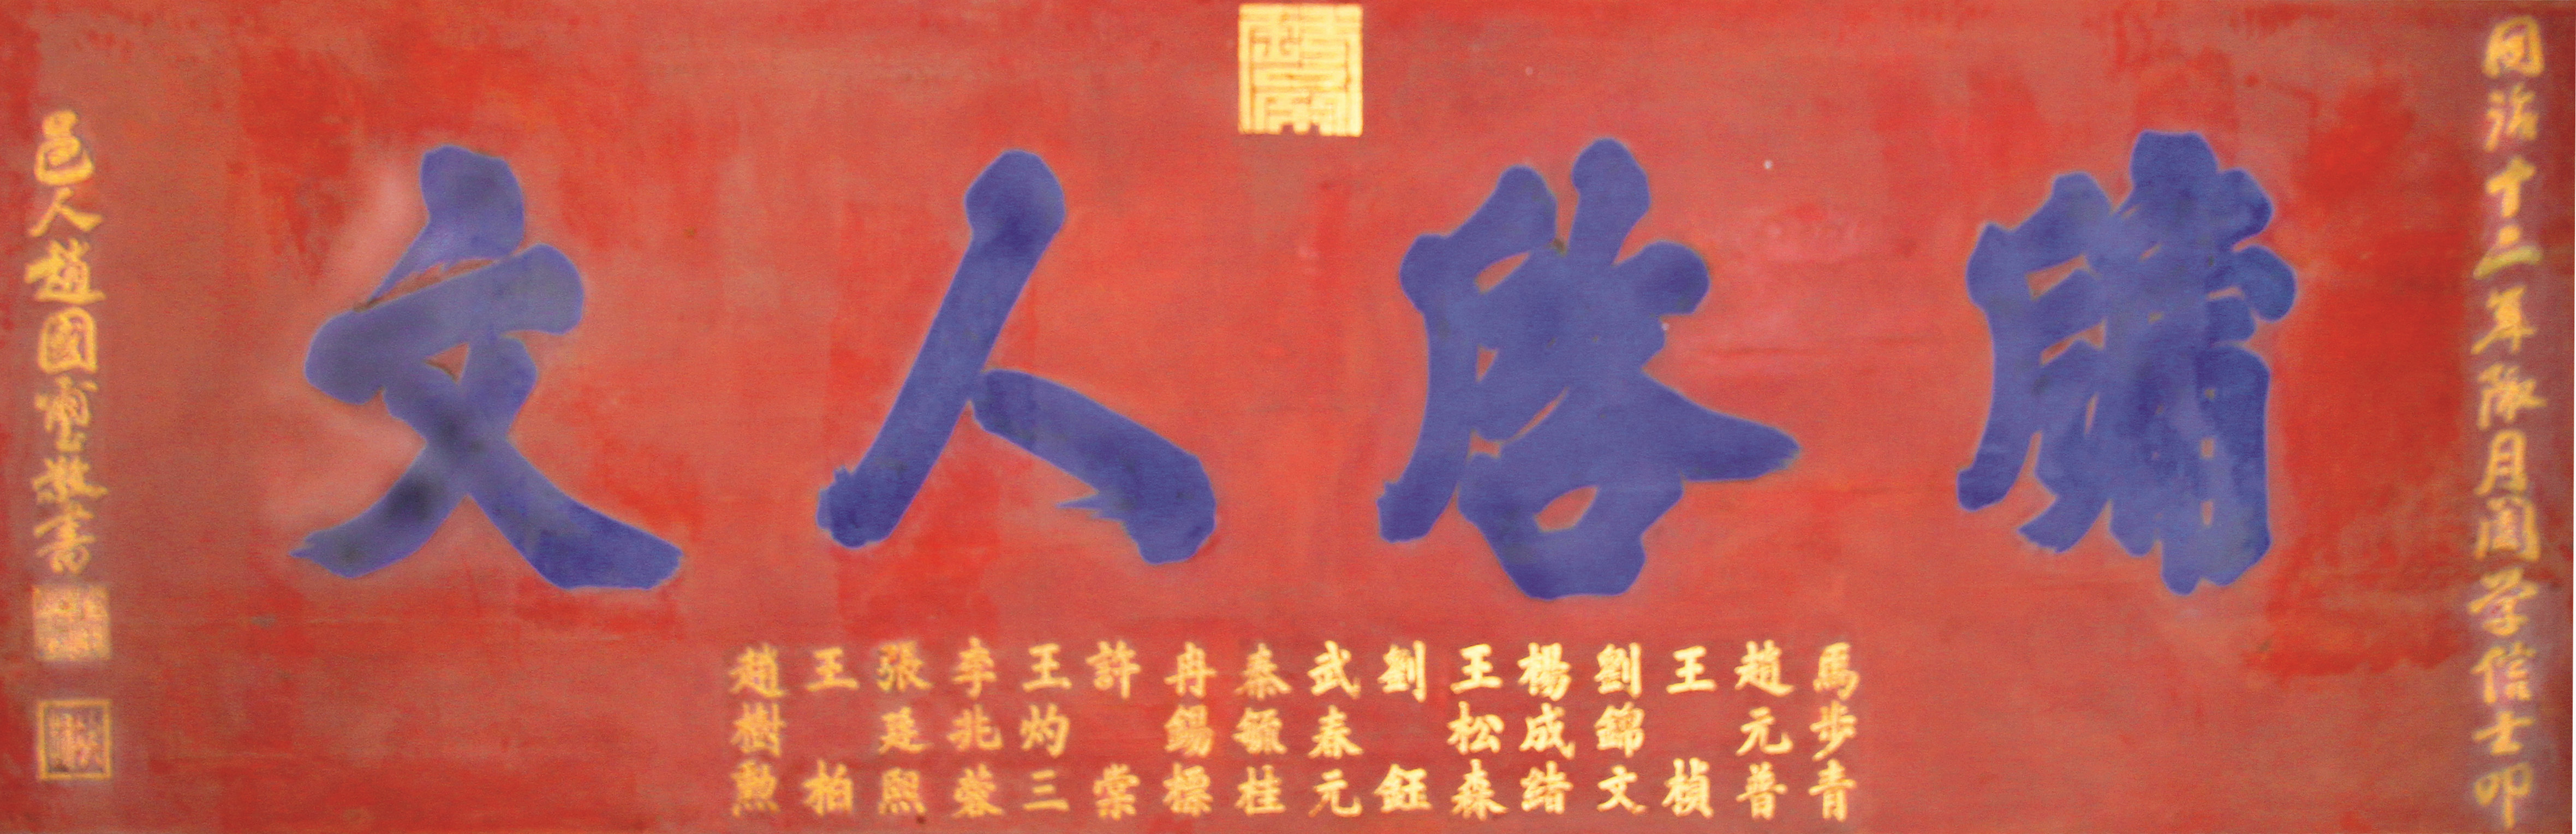 同治十二年陬月闔学信士叩
肇啓人文
馬步青
趙元普
王楨
劉錦文
楊成緒
王松森
劉鈺
武春元
秦桂
冉錫標
許棠
王灼三
李兆蓉
張延熙
王柏
趙樹勲
邑人趙國敬書